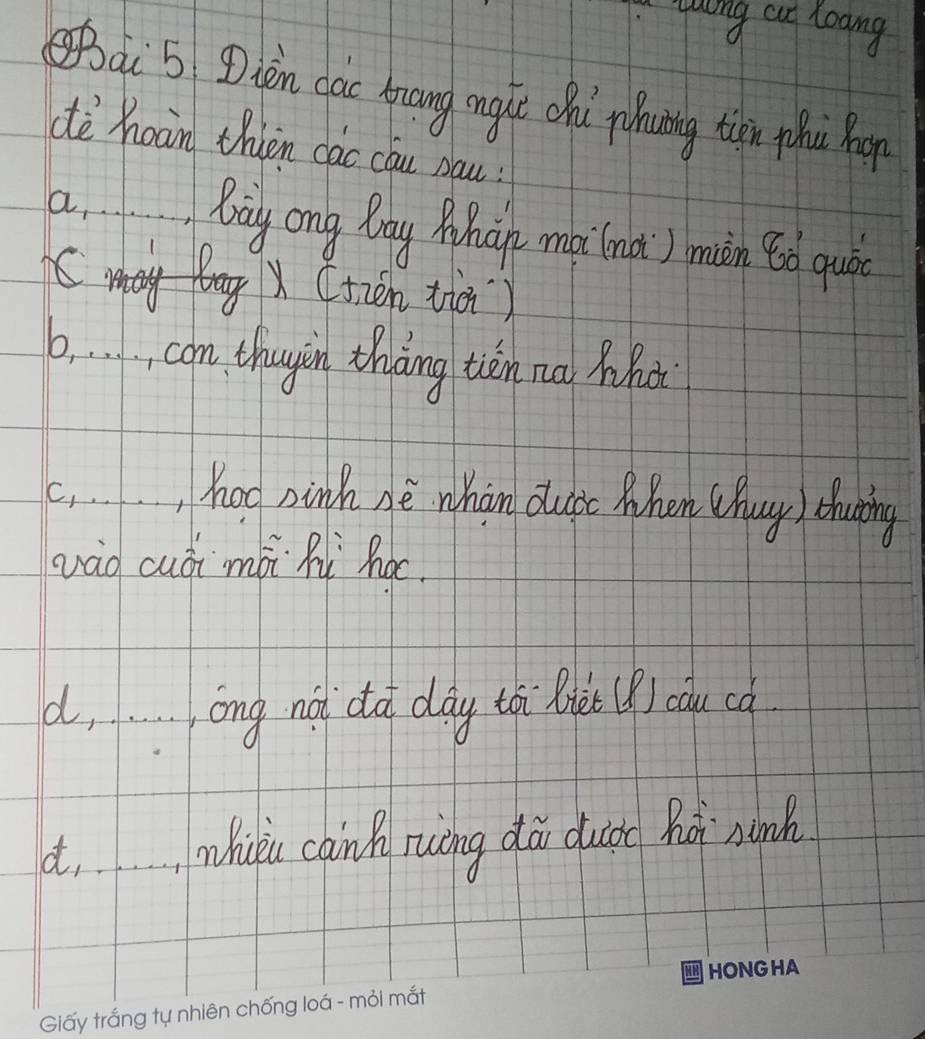 cư loang
Bài 5: Điền các trạng ngữ chỉ phương tiện phù hợp
để hoàn thiện các câu sau:
a, ......., bầy ong bay khắp mọi (nơi) miền Tổ quốc
( máy bay ) (trên trời)
b, ....., con thuyền thẳng tiến ra khơi
c, ......., học sinh sẽ nhận được khen (huy) thưởng
vào cuối mỗi kì học.
d, ......., ông nội đã dạy tôi biết (l) câu cá.
đ, ......., nhiều cánh rừng đã được hồi sinh.
HONG HA
Giấy trắng tự nhiên chống loá - mỏi mắt